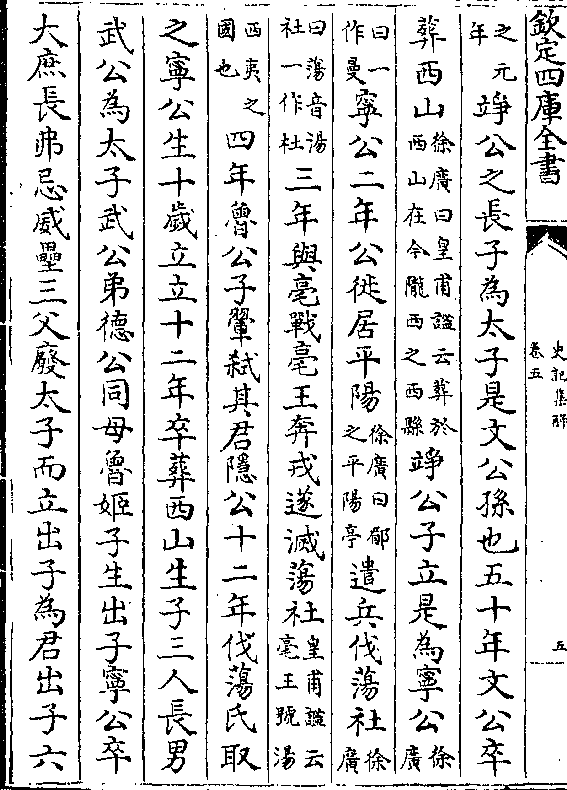 欽定四庫全書
史記集解
卷五
五
之元年竫公之長子為太子是文公孫也五十年文公卒
葬西山徐廣曰皇甫謐云葬於西山在今隴西之西縣竫公子立是為寧公徐廣
曰一作曼寧公二年公徙居平陽徐廣曰郿之平陽亭遣兵伐蕩社徐廣
曰蕩音湯社一作杜三年與亳戰亳王奔戎遂滅蕩社皇甫謐云亳王號湯
西夷之國也四年魯公子翬弑其君隱公十二年伐蕩氏取
之寧公生十歲立立十二年卒葬西山生子三人長男
武公為太子武公弟德公同母魯姬子生出子寧公卒
大庶長弗忌威壘三父廢太子而立出子為君出子六